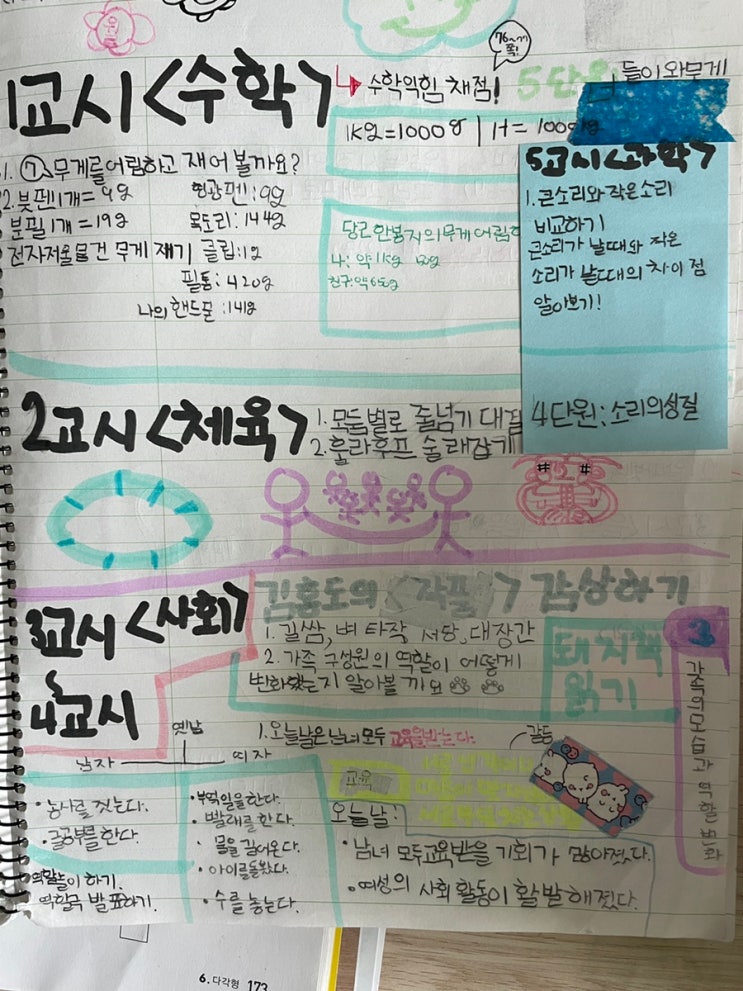 1교시<수학>
↳ 수학익힘 채점!
76~77쪽!
5단원
들이와무게
1kg=1000g | 1t=1000kg
1. ⑦ 무게를어림하고 재어 볼까요?
2. 붓펜1개= 9g 형광펜:9g
분필1개=19g 목도리:144g
전자저울물건 무게 재기 클립:1g
필통:420g
나의핸드폰:141g
당근한봉지의무게어림하
나: 약1kg
친구:약650g
5교시<과학>
1. 큰소리와작은소리
비교하기
큰소리가 날때와 작은
소리가 날때의 차이 점
알아보기!
4단원:소리의성질
2교시<체육>
1. 모둠별로 줄넘기 대결
2. 훌라후프 술래잡기
3교시<사회>
4교시
김홍도의 <작품> 감상하기
1. 길쌈, 벼 타작 서당, 대장간
2. 가족 구성원의 역할이 어떻게
변화했는지 알아볼까요
돼지책
읽기
3
가족의모습과 역할 변화
옛날
남자 여자
•농사를 짓는다.
•글공부를 한다.
역할놀이 하기.
역할극 발표하기.
•부엌일을한다.
•빨래를한다.
•물을길어온다.
•아이를돌봤다.
•수를 놓는다.
1. 오늘날은남녀모두 교육을받는다.
갈등
교육
오늘날:
•남녀 모두교육받을 기회가 많아졌다.
•여성의 사회 활동이 활발해졌다.
6. 다각형 173